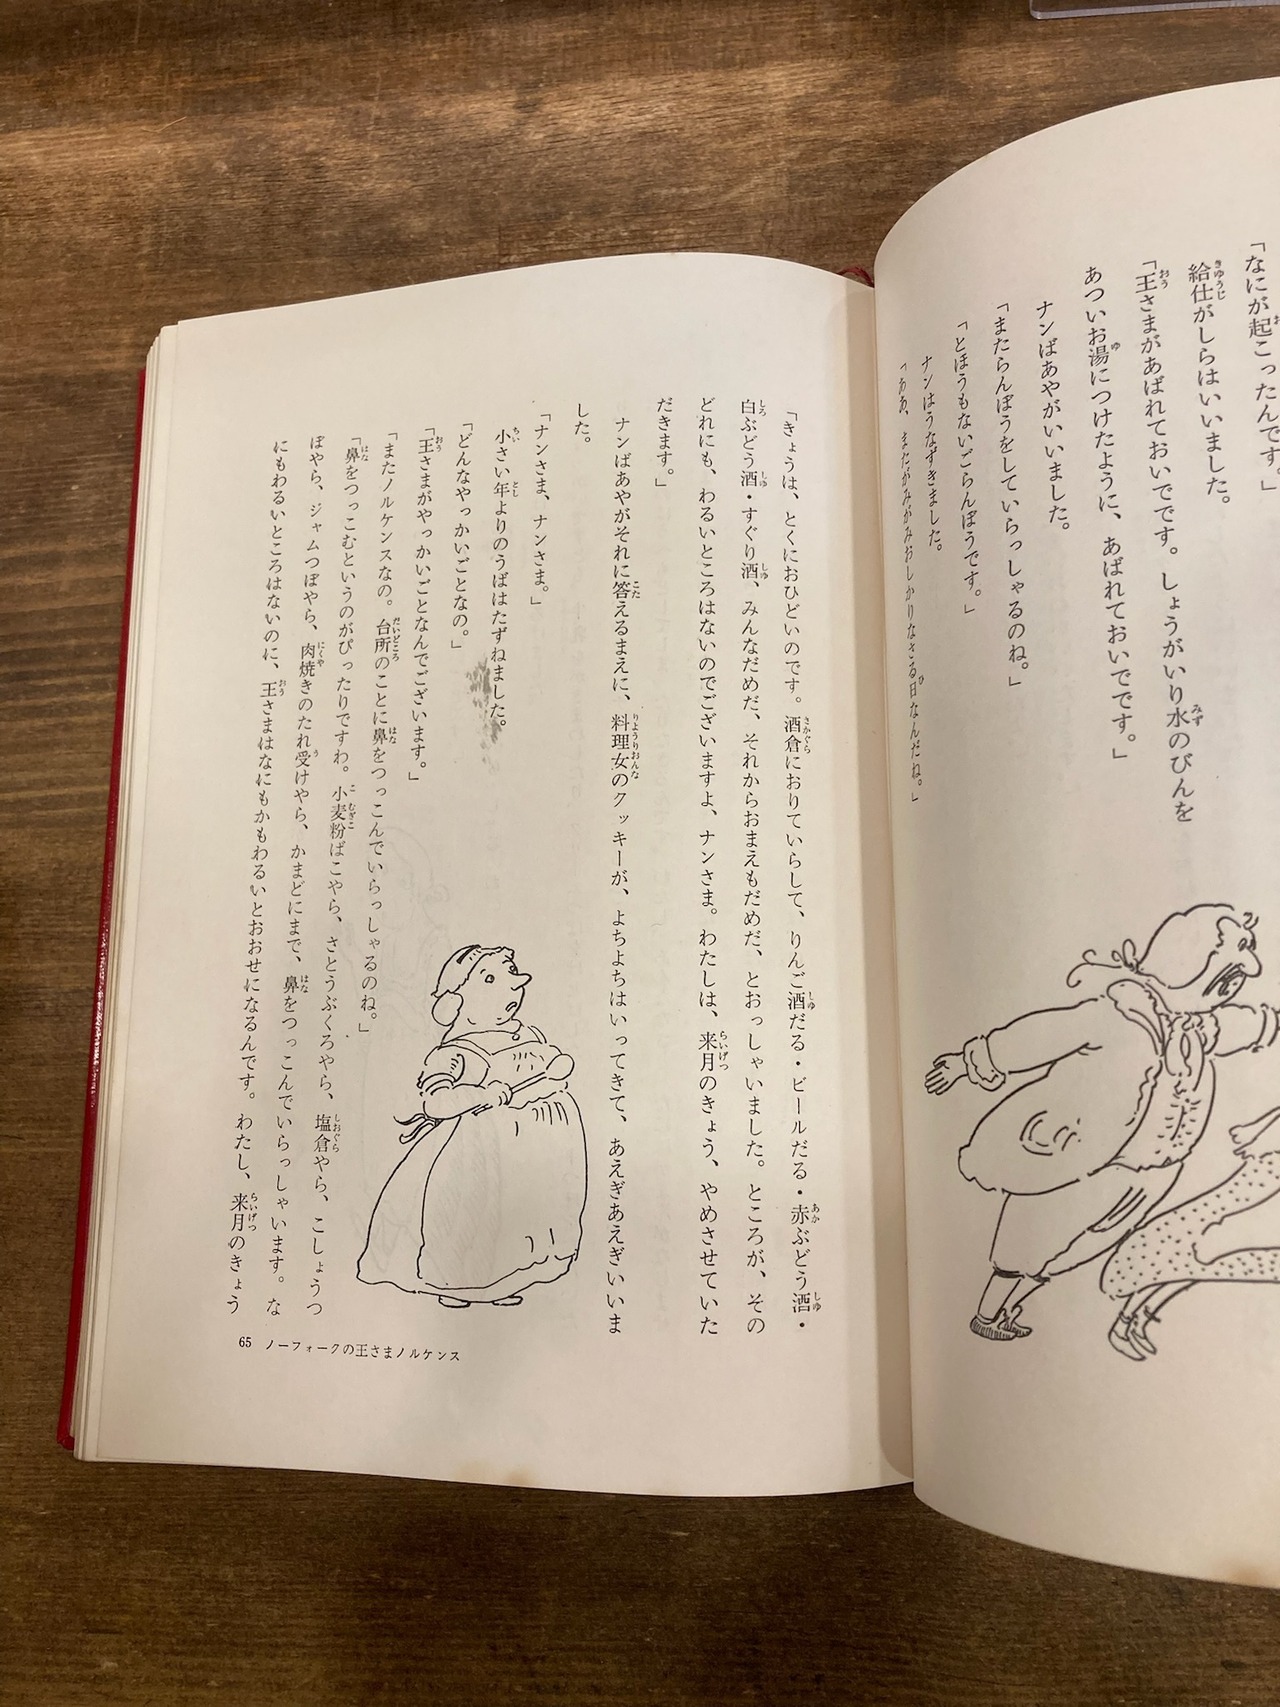 「なにが起こったんです。」
給仕がしらはいいました。
「王さまがあばれておいでです。しょうがいり水のびんを
あついお湯につけたように、あばれておいでです。」
ナンばあやがいいました。
「またらんぼうをしていらっしゃるのね。」
「とほうもないごらんぼうです。」
ナンはうなずきました。
「ああ、またがみがみおしかりなさる日なんだね。」
「きょうは、とくにおひどいのです。酒倉におりていらして、りんご酒だる・ビールだる・赤ぶどう酒・
白ぶどう酒・すぐり酒、みんなだめだ、それからおまえもだめだ、とおっしゃいました。ところが、その
どれにも、わるいところはないのでございますよ、ナンさま。わたしは、来月のきょう、やめさせていた
だきます。」
ナンばあやがそれに答えるまえに、料理女のクッキーが、よちよちはいってきて、あえぎあえぎいいま
した。
「ナンさま、ナンさま。」
小さい年よりのうばはたずねました。
「どんなやっかいごとなの。」
「王さまがやっかいごとなんでございます。」
「またノルケンスなの。台所のことに鼻をつっこんでいらっしゃるのね。」
「鼻をつっこむというのがぴったりですわ。小麦粉ばこやら、さとうぶくろやら、塩倉やら、こしょうつ
ぼやら、ジャムつぼやら、肉焼きのたれ受けやら、かまどにまで、鼻をつっこんでいらっしゃいます。な
にもわるいところはないのに、王さまはなにもかもわるいとおおせになるんです。わたし、来月のきょう
65 ノーフォークの王さまノルケンス